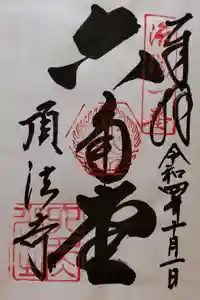 奉拝
令和四年十月一日
六角堂
頂法寺